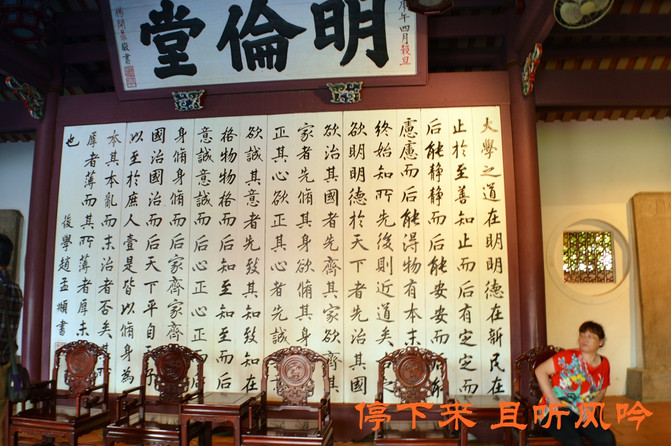 明倫堂
庚年四月穀旦
大學之道在明明德在新民在
止於至善知止而后有定定而
后能靜靜而后能安安而后能
慮慮而后能得物有本末
終始知所先後則近道矣
欲明明德於天下者先治其國
欲治其國者先齊其家欲
家者先脩其身欲脩其身者先
正其心欲正其心者先誠
欲誠其意者先致其知在
格物物格而后知至知至而后
意誠意誠而后心正心正
身脩身脩而后家齊家齊
國治國治而后天下平自子
以至於庶人壹是皆以脩身為
本其本亂而末治者否矣其
厚者薄而其所薄者厚未
也
後學趙孟頫書
停下来 且听风吟